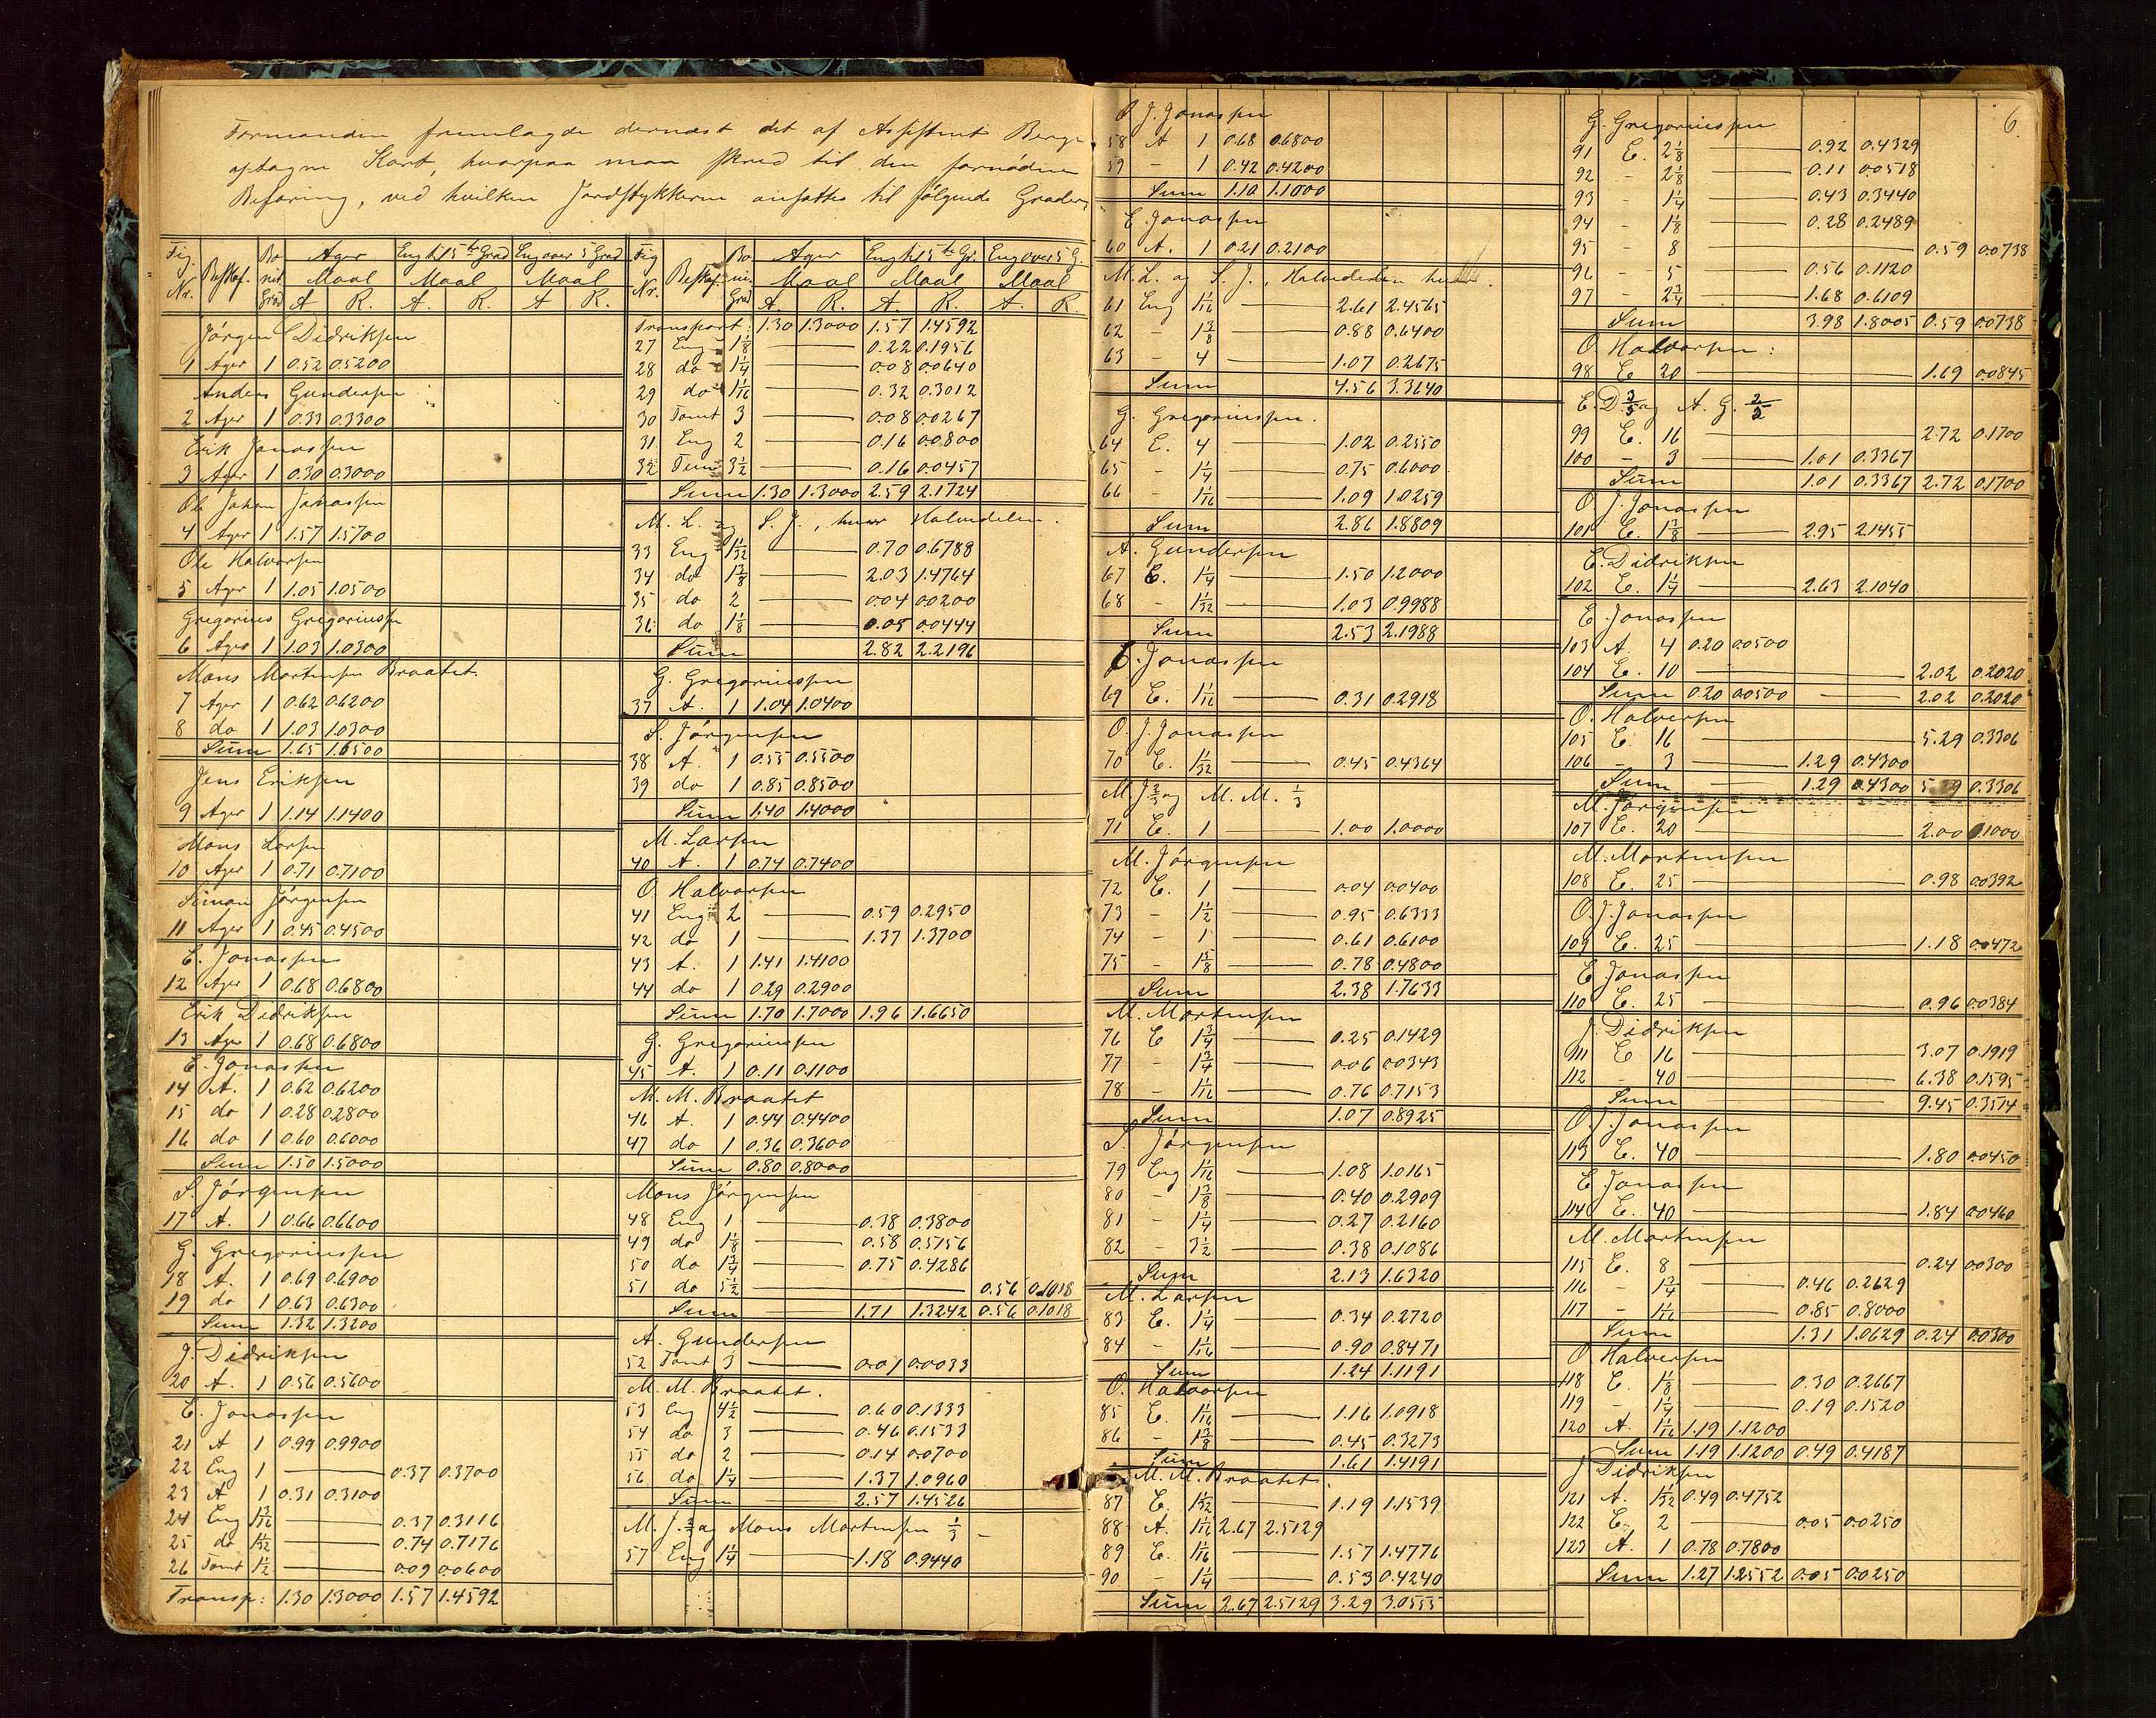 Formanden fremlagde dernæst det af Assistent Berge
optagne Kart, hvorpaa man skred til den fornødne
Befaring, ved hvilken Jordstykkerne ansattes til følgende Grader,
Fig. Nr. Beskaf. Bonit. Grad Ager Maal A R. Eng til 5te Grad Maal A. R. Eng over 5 Grad Maal A R.
Jørgen Didriksen
1 Ager 1 0.52 0.5200
Anders Gundersen
2 Ager 1 0.33 0.3300
Erik Jonassen
3 Ager 1 0.30 0.3000
Ole Johan Jonassen
4 Ager 1 1.57 1.5700
Ole Halvorsen
5 Ager 1 1.05 1.0500
Gregorius Gregoriussen
6 Ager 1 1.03 1.0300
Mons Mortensen Braatet.
7 Ager 1 0.62 0.6200
8 do 1 1.03 1.0300
Sum 1.65 1.6500
Jens Eriksen
9 Ager 1 1.14 1.1400
Mons Larsen
10 Ager 1 0.71 0.7100
Simon Jørgensen
11 Ager 1 0.45 0.4500
E. Jonassen
12 Ager 1 0.68 0.6800
Erik Didriksen
13 Ager 1 0.68 0.6800
E. Jonassen
14 A. 1 0.62 0.6200
15 do 1 0.28 0.2800
16 do 1 0.60 0.6000
Sum 1.50 1.5000
S. Jørgensen
17 A. 1 0.66 0.6600
G. Gregoriussen
18 A. 1 0.69 0.6900
19 do 1 0.63 0.6300
Sum 1.32 1.3200
J. Didriksen
20 A. 1 0.56 0.5600
E. Jonassen
21 A 1 0.99 0.9900
22 Eng 1 0.37 0.3700
23 A 1 0.31 0.3100
24 Eng 1 3/16 0.37 0.3116
25 do 1 1/32 0.74 0.7176
26 Tomt 1 1/2 0.09 0.0600
Transp: 1.30 1.3000 1.57 1.4592
Fig Nr. Beskaf. Bonit. Grad Ager Maal A. R. Eng til 5te Gr. Maal A. R. Eng over 5 G. Maal A. R.
Transport: 1.30 1.3000 1.57 1.4592
27 Eng 1 1/8 0.22 0.1956
28 do 1 1/4 0.08 0.0640
29 do 1 1/16 0.32 0.3012
30 Tomt 3 0.08 0.0267
31 Eng 2 0.16 0.0800
32 Tomt 3 1/2 0.16 0.0457
Sum 1.30 1.3000 2.59 2.1724
M. L. og S. J., hver Halvdelen.
33 Eng 1 1/32 0.70 0.6788
34 do 1 3/8 2.03 1.4764
35 do 2 0.04 0.0200
36 do 1 1/8 0.05 0.0444
Sum 2.82 2.2196
G. Gregoriussen
37 A. 1 1.04 1.0400
S. Jørgensen
38 A. 1 0.55 0.5500
39 do 1 0.85 0.8500
Sum 1.40 1.4000
M. Larsen
40 A. 1 0.74 0.7400
O. Halvorsen
41 Eng 2 0.59 0.2950
42 do 1 1.37 1.3700
43 A. 1 1.41 1.4100
44 do 1 0.29 0.2900
Sum 1.70 1.7000 1.96 1.6650
G. Gregoriussen
45 A. 1 0.11 0.1100
M. M. Braatet
46 A. 1 0.44 0.4400
47 do 1 0.36 0.3600
Sum 0.80 0.8000
Mons Jørgensen
48 Eng 1 0.38 0.3800
49 do 1 1/8 0.58 0.5156
50 do 1 3/4 0.75 0.4286
51 do 5 1/2 0.56 0.1018
Sum 1.71 1.3242 0.56 0.1018
A. Gundersen
52 Tomt 3 0.01 0.0033
M. M. Braatet.
53 Eng 4 1/2 0.60 0.1333
54 do 3 0.46 0.1533
55 do 2 0.14 0.0700
56 do 1 1/4 1.37 1.0960
Sum 2.57 1.4526
M. J. 2/3 og Mons Mortensen 1/3
57 Eng 1 1/4 1.18 0.9440
O. J. Jonassen
58 A 1 0.68 0.6800
59 - 1 0.42 0.4200
Sum 1.10 1.1000
E. Jonassen
60 A. 1 0.21 0.2100
M. L. og S. J., Halvdelen hver.
61 Eng 1 1/16 2.61 2.4565
62 - 1 3/8 0.88 0.6400
63 - 4 1.07 0.2675
Sum 4.56 3.3640
G. Gregoriussen.
64 E. 4 1.02 0.2550
65 - 1 1/4 0.75 0.6000
66 - 1 1/16 1.09 1.0259
Sum 2.86 1.8809
A. Gundersen
67 E. 1 1/4 1.50 1.2000
68 - 1 1/32 1.03 0.9988
Sum 2.53 2.1988
E. Jonassen
69 E. 1 1/16 0.31 0.2918
O. J. Jonassen
70 E. 1 1/32 0.45 0.4364
M. J. 2/3 og M. M. 1/3
71 E. 1 1.00 1.0000
M. Jørgensen
72 E. 1 0.04 0.0400
73 - 1 1/2 0.95 0.6333
74 - 1 0.61 0.6100
75 - 1 5/8 0.78 0.4800
Sum 2.38 1.7633
M. Mortensen
76 E 1 3/4 0.25 0.1429
77 - 1 3/4 0.06 0.0343
78 - 1 1/16 0.76 0.7153
Sum 1.07 0.8925
S. Jørgensen
79 Eng 1 1/16 1.08 1.0165
80 - 1 3/8 0.40 0.2909
81 - 1 1/4 0.27 0.2160
82 - 3 1/2 0.38 0.1086
Sum 2.13 1.6320
M. Larsen
83 E. 1 1/4 0.34 0.2720
84 - 1 1/16 0.90 0.8471
Sum 1.24 1.1191
O. Halvorsen
85 E. 1 1/16 1.16 1.0918
86 - 1 3/8 0.45 0.3273
Sum 1.61 1.4191
M. M. Braatet.
87 E. 1 1/32 1.19 1.1539
88 A. 1 1/16 2.67 2.5129
89 E. 1 1/16 1.57 1.4776
90 - 1 1/4 0.53 0.4240
Sum 2.67 2.5129 3.29 3.0555
6.
G. Gregoriussen
91 E. 2 1/8 0.92 0.4329
92 - 2 1/8 0.11 0.0518
93 - 1 1/4 0.43 0.3440
94 - 1 1/8 0.28 0.2489
95 - 8 0.59 0.0738
96 - 5 0.56 0.1120
97 - 2 3/4 1.68 0.6109
Sum 3.98 1.8005 0.59 0.0738
O. Halvorsen:
98 E. 20 1.69 0.0845
E. D. 3/5 og A. G. 2/5
99 E. 16 2.72 0.1700
100 - 3 1.01 0.3367
Sum 1.01 0.3367 2.72 0.1700
O. J. Jonassen
101 E. 1 3/8 2.95 2.1455
E. Didriksen
102 E. 1 1/4 2.63 2.1040
E. Jonassen
103 A. 4 0.20 0.0500
104 E. 10 2.02 0.2020
Sum 0.20 0.0500 2.02 0.2020
O. Halvorsen
105 E. 16 5.29 0.3306
106 - 3 1.29 0.4300
Sum 1.29 0.4300 5.29 0.3306
M. Jørgensen
107 E. 20 2.00 0.1000
M. Mortensen
108 E. 25 0.98 0.0392
O. J. Jonassen
109 E. 25 1.18 0.0472
E. Jonassen
110 E. 25 0.96 0.0384
J. Didriksen
111 E 16 3.07 0.1919
112 - 40 6.38 0.1595
Sum 9.45 0.3514
O. J. Jonassen
113 E. 40 1.80 0.0450
E. Jonassen
114 E. 40 1.84 0.0460
M. Mortensen
115 E. 8 0.24 0.0300
116 - 1 3/4 0.46 0.2629
117 - 1 1/16 0.85 0.8000
Sum 1.31 1.0629 0.24 0.0300
O. Halvorsen
118 E. 1 1/8 0.30 0.2667
119 - 1 1/4 0.19 0.1520
120 A. 1 1/16 1.19 1.1200
Sum 1.19 1.1200 0.49 0.4187
J. Didriksen
121 A. 1 1/32 0.49 0.4752
122 E. 2 0.05 0.0250
123 A. 1 0.78 0.7800
Sum 1.27 1.2552 0.05 0.0250